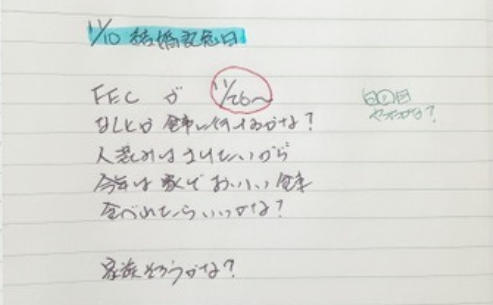 11/10 結婚記念日
FECが 11/26〜
なんとか食事に行けるかな？
人混みはさけたいから
今年は家でおいしい食事
食べれたらいいかな？
家族そろうかな？